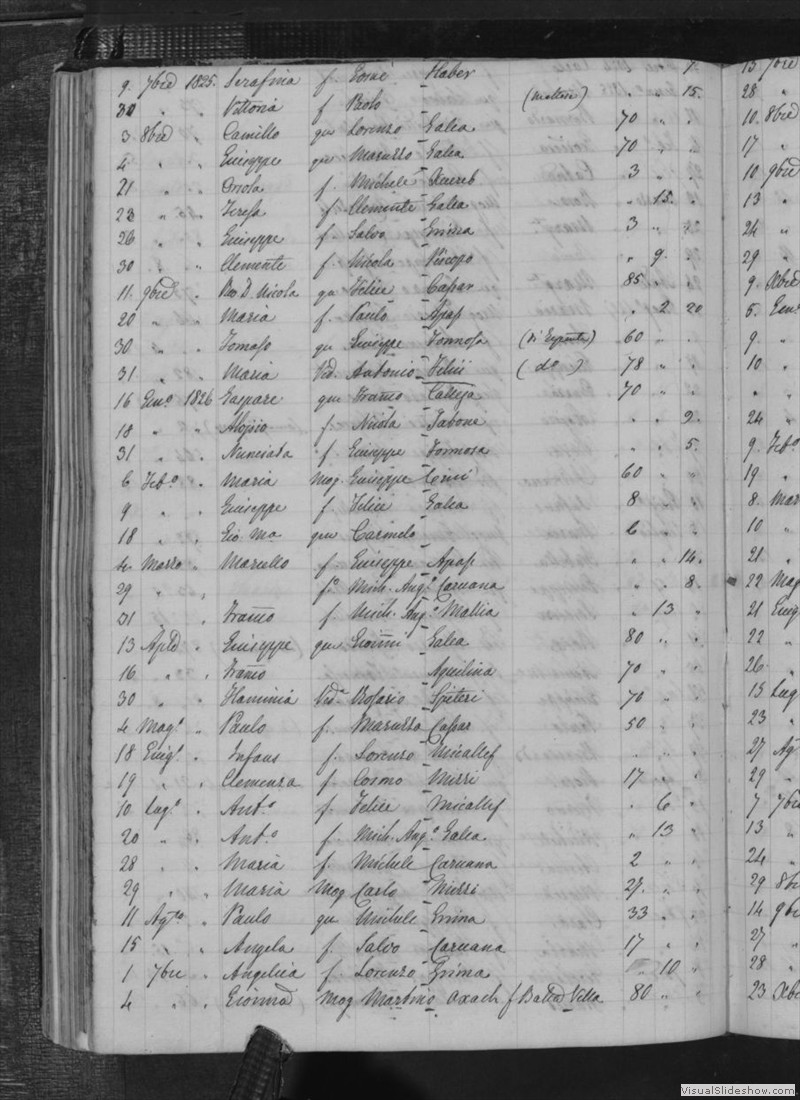 9. 7bre 1825. Serafina f. Cosmi Haber 7.
30 " " Vittoria f Paolo - (maltese) " " 15.
3 8bre " Camillo qu Lorenzo Galea 70 " "
4 " " Giuseppe qu Maruzzo Galea 70 " "
21 " " Orsola f. Michele Xuereb 3 " "
23 " " Teresa f Clemente Galea " 15. "
26 " " Giuseppe f. Salvo Grima 3 " "
30 " " Clemente f. Nicola Piscopo " 9. "
11. 9bre " Nicola qu Felice Caspar 85 " "
20 " " Maria f. Paulo Apap . 2 20
30 " " Tomaso qu Giuseppe Formosa 60 " "
31 " " Maria Vid. Antonio Felici (do) 78 " "
16 Genº 1826 Gaspare qu Franco Calleja 70 " "
18 " " Aloisio f. Nicola Tabone " " 9.
31 " " Nunciada f Giuseppe Formosa " " 5.
6 Febº " Maria mog. Giuseppe 60 " "
9 " " Giuseppe f. Felici Galea 8 " "
18 " " Gio Ma qu Carmelo - 6 " "
4 Marzo " Marullo f Giuseppe Apap " " 14.
29 " " fº Mich. Angº Caruana " " 8.
31 " " Franco f Mich. Angº Mallia " 13 "
13 Aple " Giuseppe qu Gioanni Galea 80 " "
16 " " Franco Aquilina 70 " "
30 " " Flaminia Vida Rosario Spiteri 70 " "
4 Magº " Paulo f. Maruzzo Caspar 50 " "
18 Giugº " Infans f. Lorenzo Micallef " " "
19 " " Clemenza f Cosmo Mizzi 17 " "
10 Lugº " Antº f. Felice Micallef " 6 "
20 " " Antº f. Mich. Angº Galea " 13 "
28 " " Maria f. Michele Caruana 2 " "
29 " " Maria Mog Carlo Mizzi 27. " "
11 Agto " Paulo qu Michele Grima 33 " "
15 " " Angela f. Salvo Caruana 17 " "
1 7bre " Angelica f. Lorenzo Grima " 10 "
4 " " Mog Martino Axach f Batta Villa 80 " "
13 7bre
28 "
10. 8bre
17 "
10 9bre
13 "
24 "
29 "
9. Xbre
5. Genº
9. "
10 "
" "
24 "
9. Febº
19 "
8. Mar
10 "
21 "
22 Mag
21 Giug
22 "
26. "
15 Lug
23 "
27 Agº
29 "
7 7bre
13 "
24 "
29 8bre
14 9bre
27 "
28 "
23 Xbre
VisualSlideshow.com